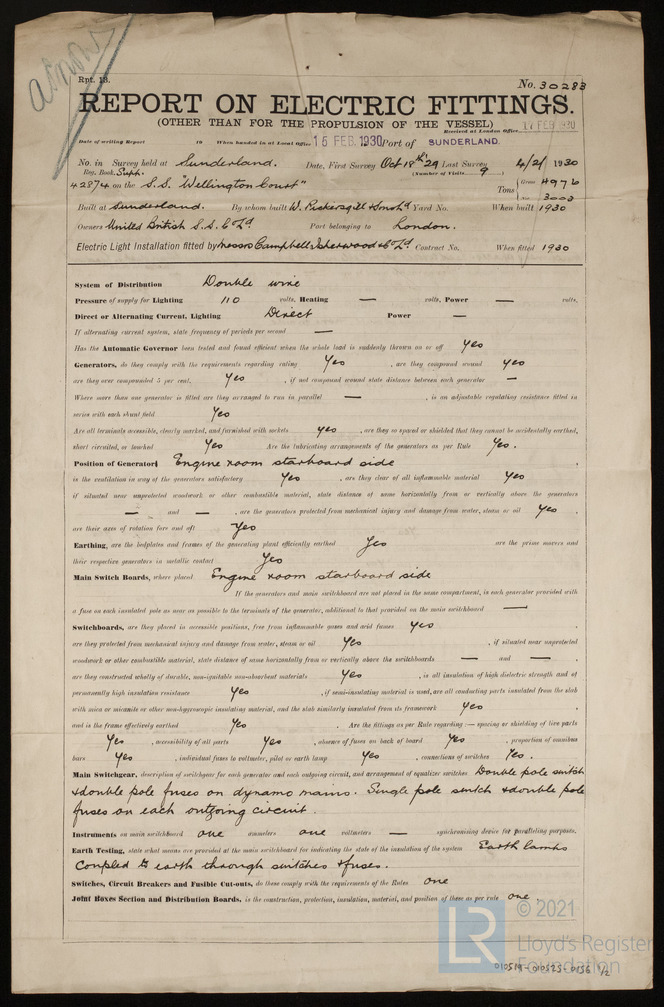 Rpt. 13.
No. 30283
REPORT ON ELECTRIC FITTINGS.
(OTHER THAN FOR THE PROPULSION OF THE VESSEL)
Received at London Office 17 FEB 1930
Date of writing Report 19 When handed in at Local Office 15 FEB. 1930 Port of SUNDERLAND.
No. in Survey held at Sunderland. Date, First Survey Oct 18th 29 Last Survey 4/2/ 1930
Reg. Book. Supt. (Number of Visits 9)
42874 on the S.S. "Wellington Court" Tons Gross 4976
Net 3003
Built at Sunderland. By whom built W. Pickersgill & Sons Ld Yard No. When built 1930
Owners United British S.S. Co Ld Port belonging to London.
Electric Light Installation fitted by Messrs Campbell & Isherwood & Co Ld Contract No. When fitted 1930
System of Distribution Double wire
Pressure of supply for Lighting 110 volts, Heating — volts, Power — volts.
Direct or Alternating Current, Lighting Direct Power —
If alternating current system, state frequency of periods per second —
Has the Automatic Governor been tested and found efficient when the whole load is suddenly thrown on or off Yes
Generators, do they comply with the requirements regarding rating Yes , are they compound wound Yes
are they over compounded 5 per cent. Yes , if not compound wound state distance between each generator —
Where more than one generator is fitted are they arranged to run in parallel — , is an adjustable regulating resistance fitted in
series with each shunt field Yes
Are all terminals accessible, clearly marked, and furnished with sockets yes , are they so spaced or shielded that they cannot be accidentally earthed,
short circuited, or touched Yes Are the lubricating arrangements of the generators as per Rule Yes.
Position of Generators Engine room starboard side ,
is the ventilation in way of the generators satisfactory Yes , are they clear of all inflammable material Yes
if situated near unprotected woodwork or other combustible material, state distance of same horizontally from or vertically above the generators
— and — , are the generators protected from mechanical injury and damage from water, steam or oil Yes ,
are their axes of rotation fore and aft Yes
Earthing, are the bedplates and frames of the generating plant efficiently earthed Yes are the prime movers and
their respective generators in metallic contact Yes
Main Switch Boards, where placed Engine room starboard side
If the generators and main switchboard are not placed in the same compartment, is each generator provided with
a fuse on each insulated pole as near as possible to the terminals of the generator, additional to that provided on the main switchboard —
Switchboards, are they placed in accessible positions, free from inflammable gases and acid fumes Yes ,
are they protected from mechanical injury and damage from water, steam or oil Yes , if situated near unprotected
woodwork or other combustible material, state distance of same horizontally from or vertically above the switchboards — and — ,
are they constructed wholly of durable, non-ignitable non-absorbent materials Yes , is all insulation of high dielectric strength and of
permanently high insulation resistance Yes , if semi-insulating material is used, are all conducting parts insulated from the slab
with mica or micanite or other non-hygroscopic insulating material, and the slab similarly insulated from its framework Yes ,
and is the frame effectively earthed Yes . Are the fittings as per Rule regarding :— spacing or shielding of live parts
Yes , accessibility of all parts Yes , absence of fuses on back of board Yes , proportion of omnibus
bars Yes , individual fuses to voltmeter, pilot or earth lamp Yes , connections of switches Yes.
Main Switchgear, description of switchgear for each generator and each outgoing circuit, and arrangement of equalizer switches Double pole switch
& double pole fuses on dynamo mains. Single pole switch & double pole
fuses on each outgoing circuit.
Instruments on main switchboard one ammeters one voltmeters — synchronising device for paralleling purposes.
Earth Testing, state what means are provided at the main switchboard for indicating the state of the insulation of the system Earth lamps
coupled to earth through switches & fuses.
Switches, Circuit Breakers and Fusible Cut-outs, do these comply with the requirements of the Rules one
Joint Boxes Section and Distribution Boards, is the construction, protection, insulation, material, and position of these as per rule one.
© 2021
LR
Lloyd's Register
Foundation
010519-010525-0156 1/2